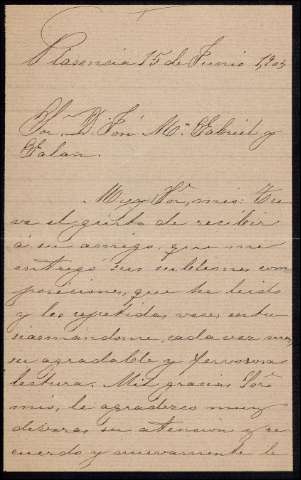 Plasencia 15 de Junio 1903
Sr. D. José Mª Gabriel y
Galan.
Muy Sr. mio: Tu
ve el gusto de recibir
á su amigo, que me
entregó sus sublimes com
posiciones, que he leido
y leo repetidas veces entu
siasmandome, cada vez mas,
su agradable y fervorosa
lectura. Mil gracias Sor.
mio, le agradezco muy
deveras su atencion y re
cuerdo y nuevamente le